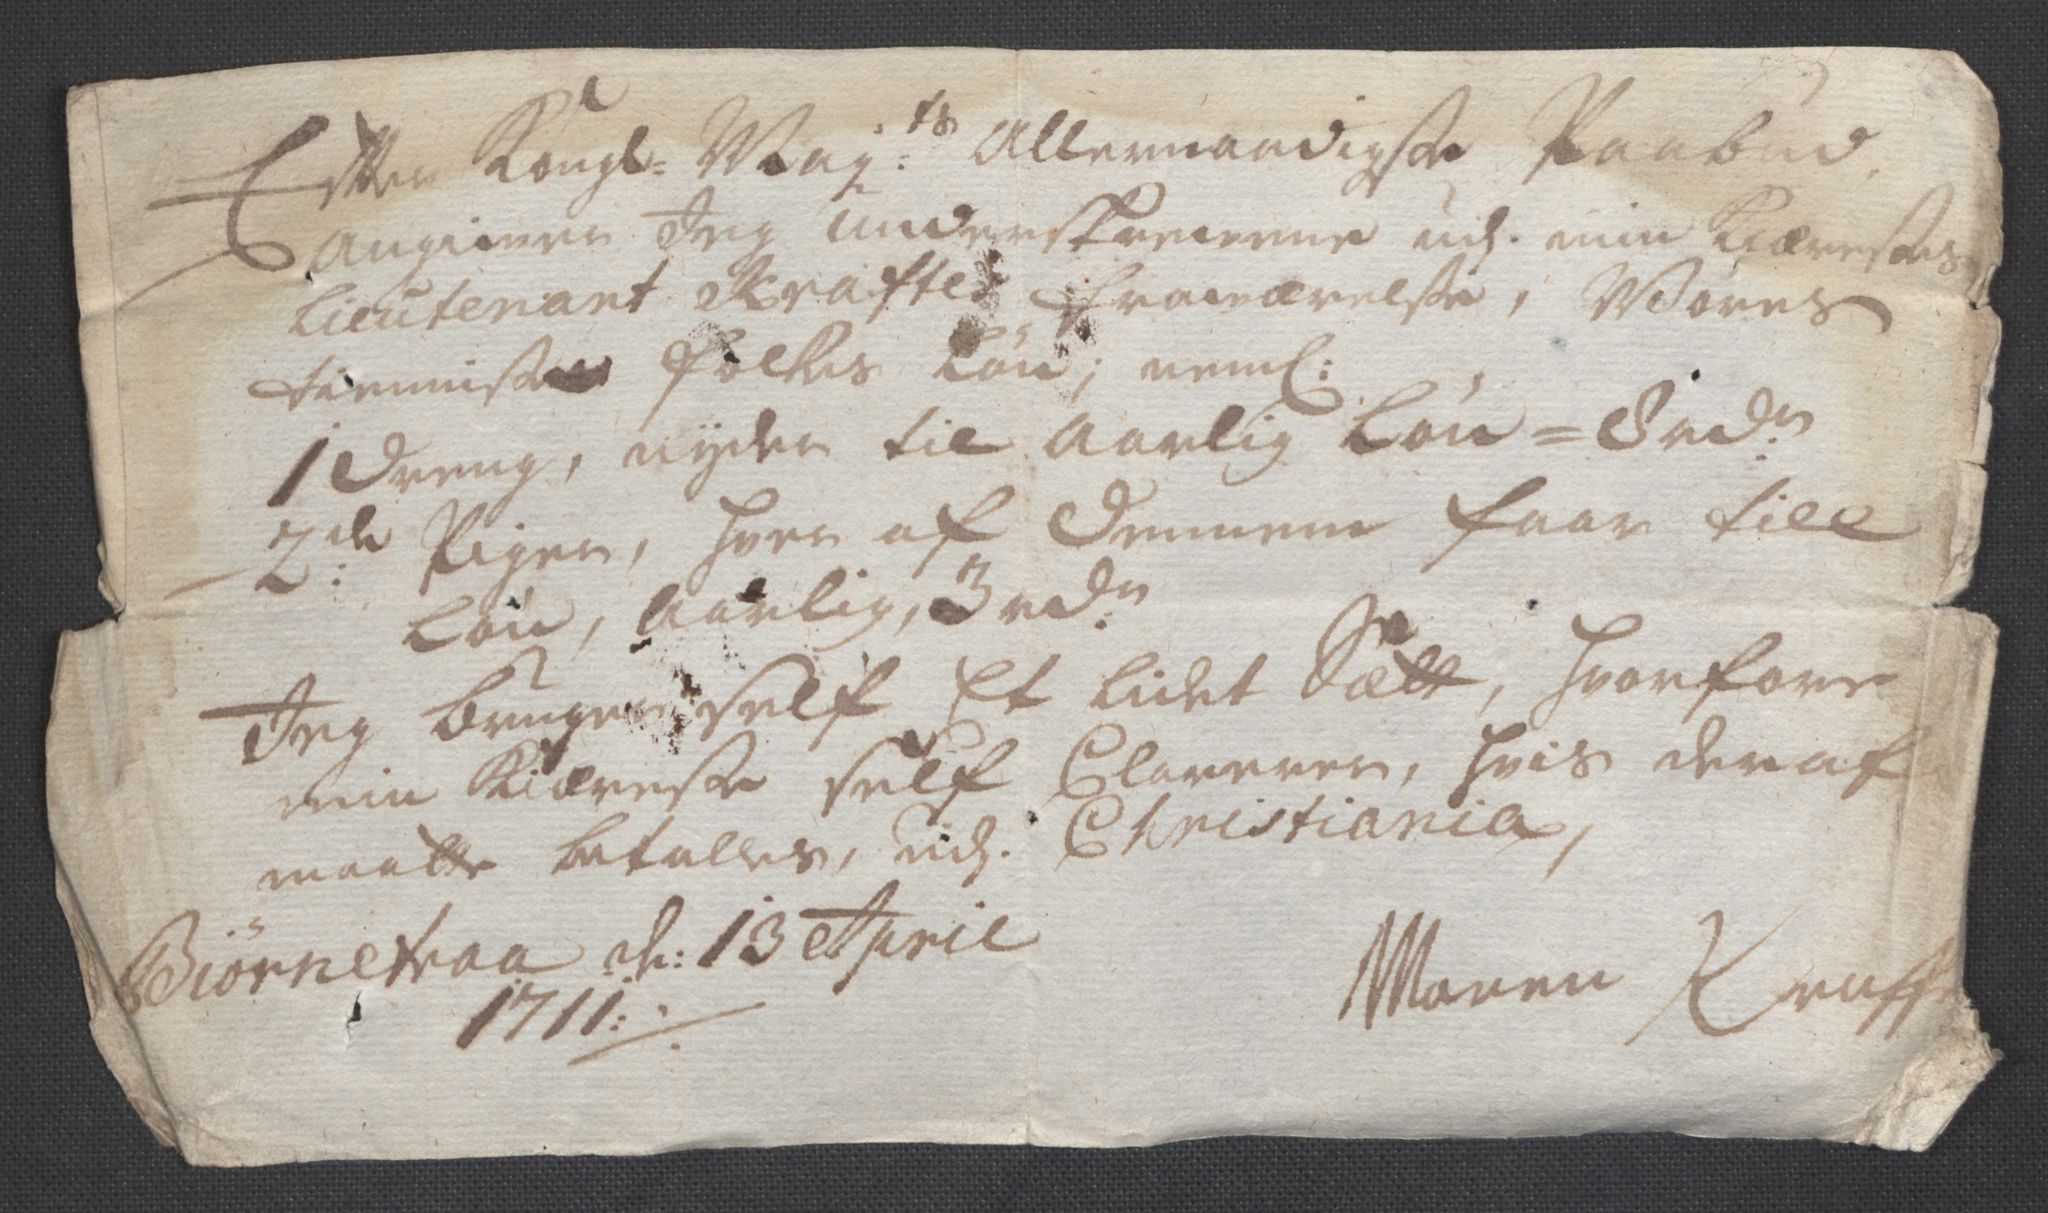 Effter Kongl: Maÿ:ts Allernaadigste Paabud,
Angiver Jeg Underskrevene udj. min Kiærestes
Lieutenant Krafftes Fraværelse, Wores
tienniste folkes Løn; neml:
1 Dreng, nyder til Aarlig Løn = 8 rdr
2de Piger, hver af Dennem faar till
Løn, Aarlig, 3 rdr
Jeg bruger self Et lidet Sætt, hvorfore
min Kiæreste self Clarerer, hvis deraf
maatte betalles, udj. Christiania,
Biørnetraa d: 13 April
1711:
Maren Krafft